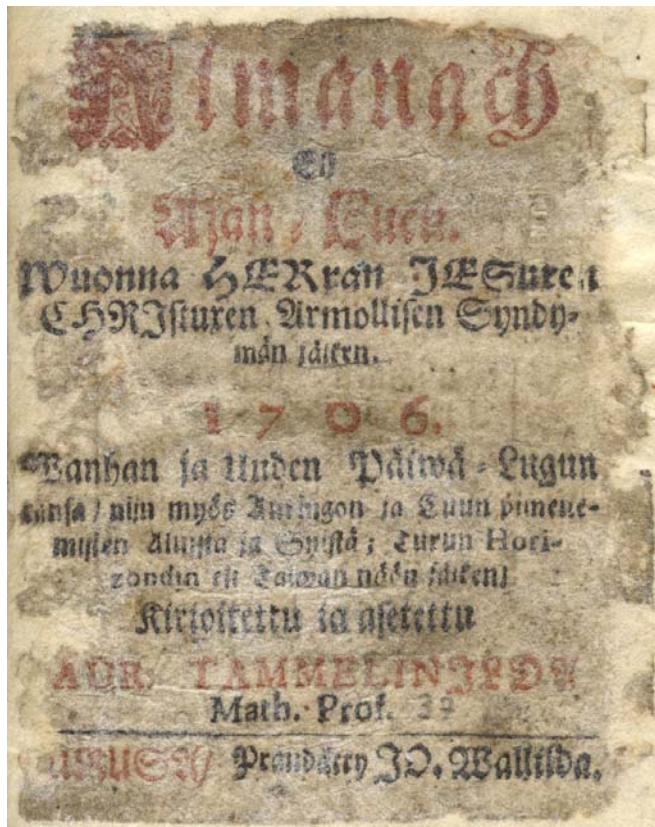 Almanach
Eli
Ajan-Lucu.
Wuonna HERran JESuxen
CHRIstuxen Armollisen Syndy-
män jälken.
1706.
Wanhan ja Uuden Päiwä-Lugun
cansa / nijn myös Auringon ja Cuun pimene-
misten Aluista ja Syistä; Turun Hori-
zondin eli Taiwan näön jälken /
Kirjoitettu ja asetettu
LAUR. TAMMELINILDA
Math. Prof. 39
TURUSA / Prändätty JO. Wallilda.